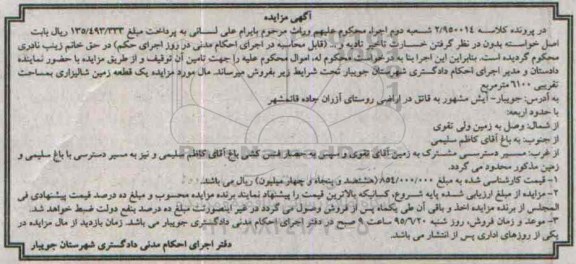 آگهی مزایده
در پرونده کلاسه ۲/۹۵۰۰۱۴ شعبه دوم اجراء محکوم علیهم وراث مرحوم بایرام علی لسانی به پرداخت مبلغ ۱۳۵/۴۹۳/۳۳۳ ریال بابت
اصل خواسته بدون در نظر گرفتن خسارت تأخیر تأدیه و... (قابل محاسبه در اجرای احکام مدنی در روز اجرای حکم) در حق خانم زینب نادری
محکوم گردیده است. بنابراین این اجرا بنا به درخواست محکوم له، اموال محکوم علیه را جهت تامین آن توقیف و از طریق مزایده با حضور نماینده
دادستان و مدیر اجرای احکام دادگستری شهرستان جویبار تحت شرایط زیر بفروش میرساند. مال مورد مزایده یک قطعه زمین شالیزاری بمساحت
تقریبی ۶۱۰۰ مترمربع
به آدرس: جویبار- آیش مشهور به قاتق در اراضی روستای آزران جاده قائمشهر
با حدود اربعه:
از شمال: وصل به زمین ولی تقوی
از جنوب: به باغ آقای کاظم سلیمی
از غرب: مسیر دسترسی مشترک به زمین آقای تقوی و سپس به حصار فنس کشی باغ آقای کاظم سلیمی و نیز به مسیر دسترسی با باغ سلیمی و
زمین مذکور محدود می گردد.
۱- قیمت کارشناسی شده به مبلغ ۸۵۴/۰۰۰/۰۰۰ (هشتصد و پنجاه و چهار میلیون) ریال می باشد.
۲- مزایده از مبلغ ارزیابی شده پایه شروع، کسانیکه بالاترین قیمت را پیشنهاد نمایند برنده مزایده محسوب و مبلغ ده درصد قیمت پیشنهادی فی
المجلس از برنده مزایده اخذ و باقی آن طی یکماه پس از فروش وصول می گردد در غیر اینصورت مبلغ ده درصد بنفع دولت ضبط خواهد شد.
۳- موعد و زمان فروش، روز شنبه ۹۵/۷/۲۰ ساعت ۹ صبح در دفتر اجرای احکام مدنی دادگستری جویبار می باشد. زمان بازدید از مال مزایده در
یکی از روزهای اداری پس از انتشار می باشد.
دفتر اجرای احکام مدنی دادگستری شهرستان جویبار